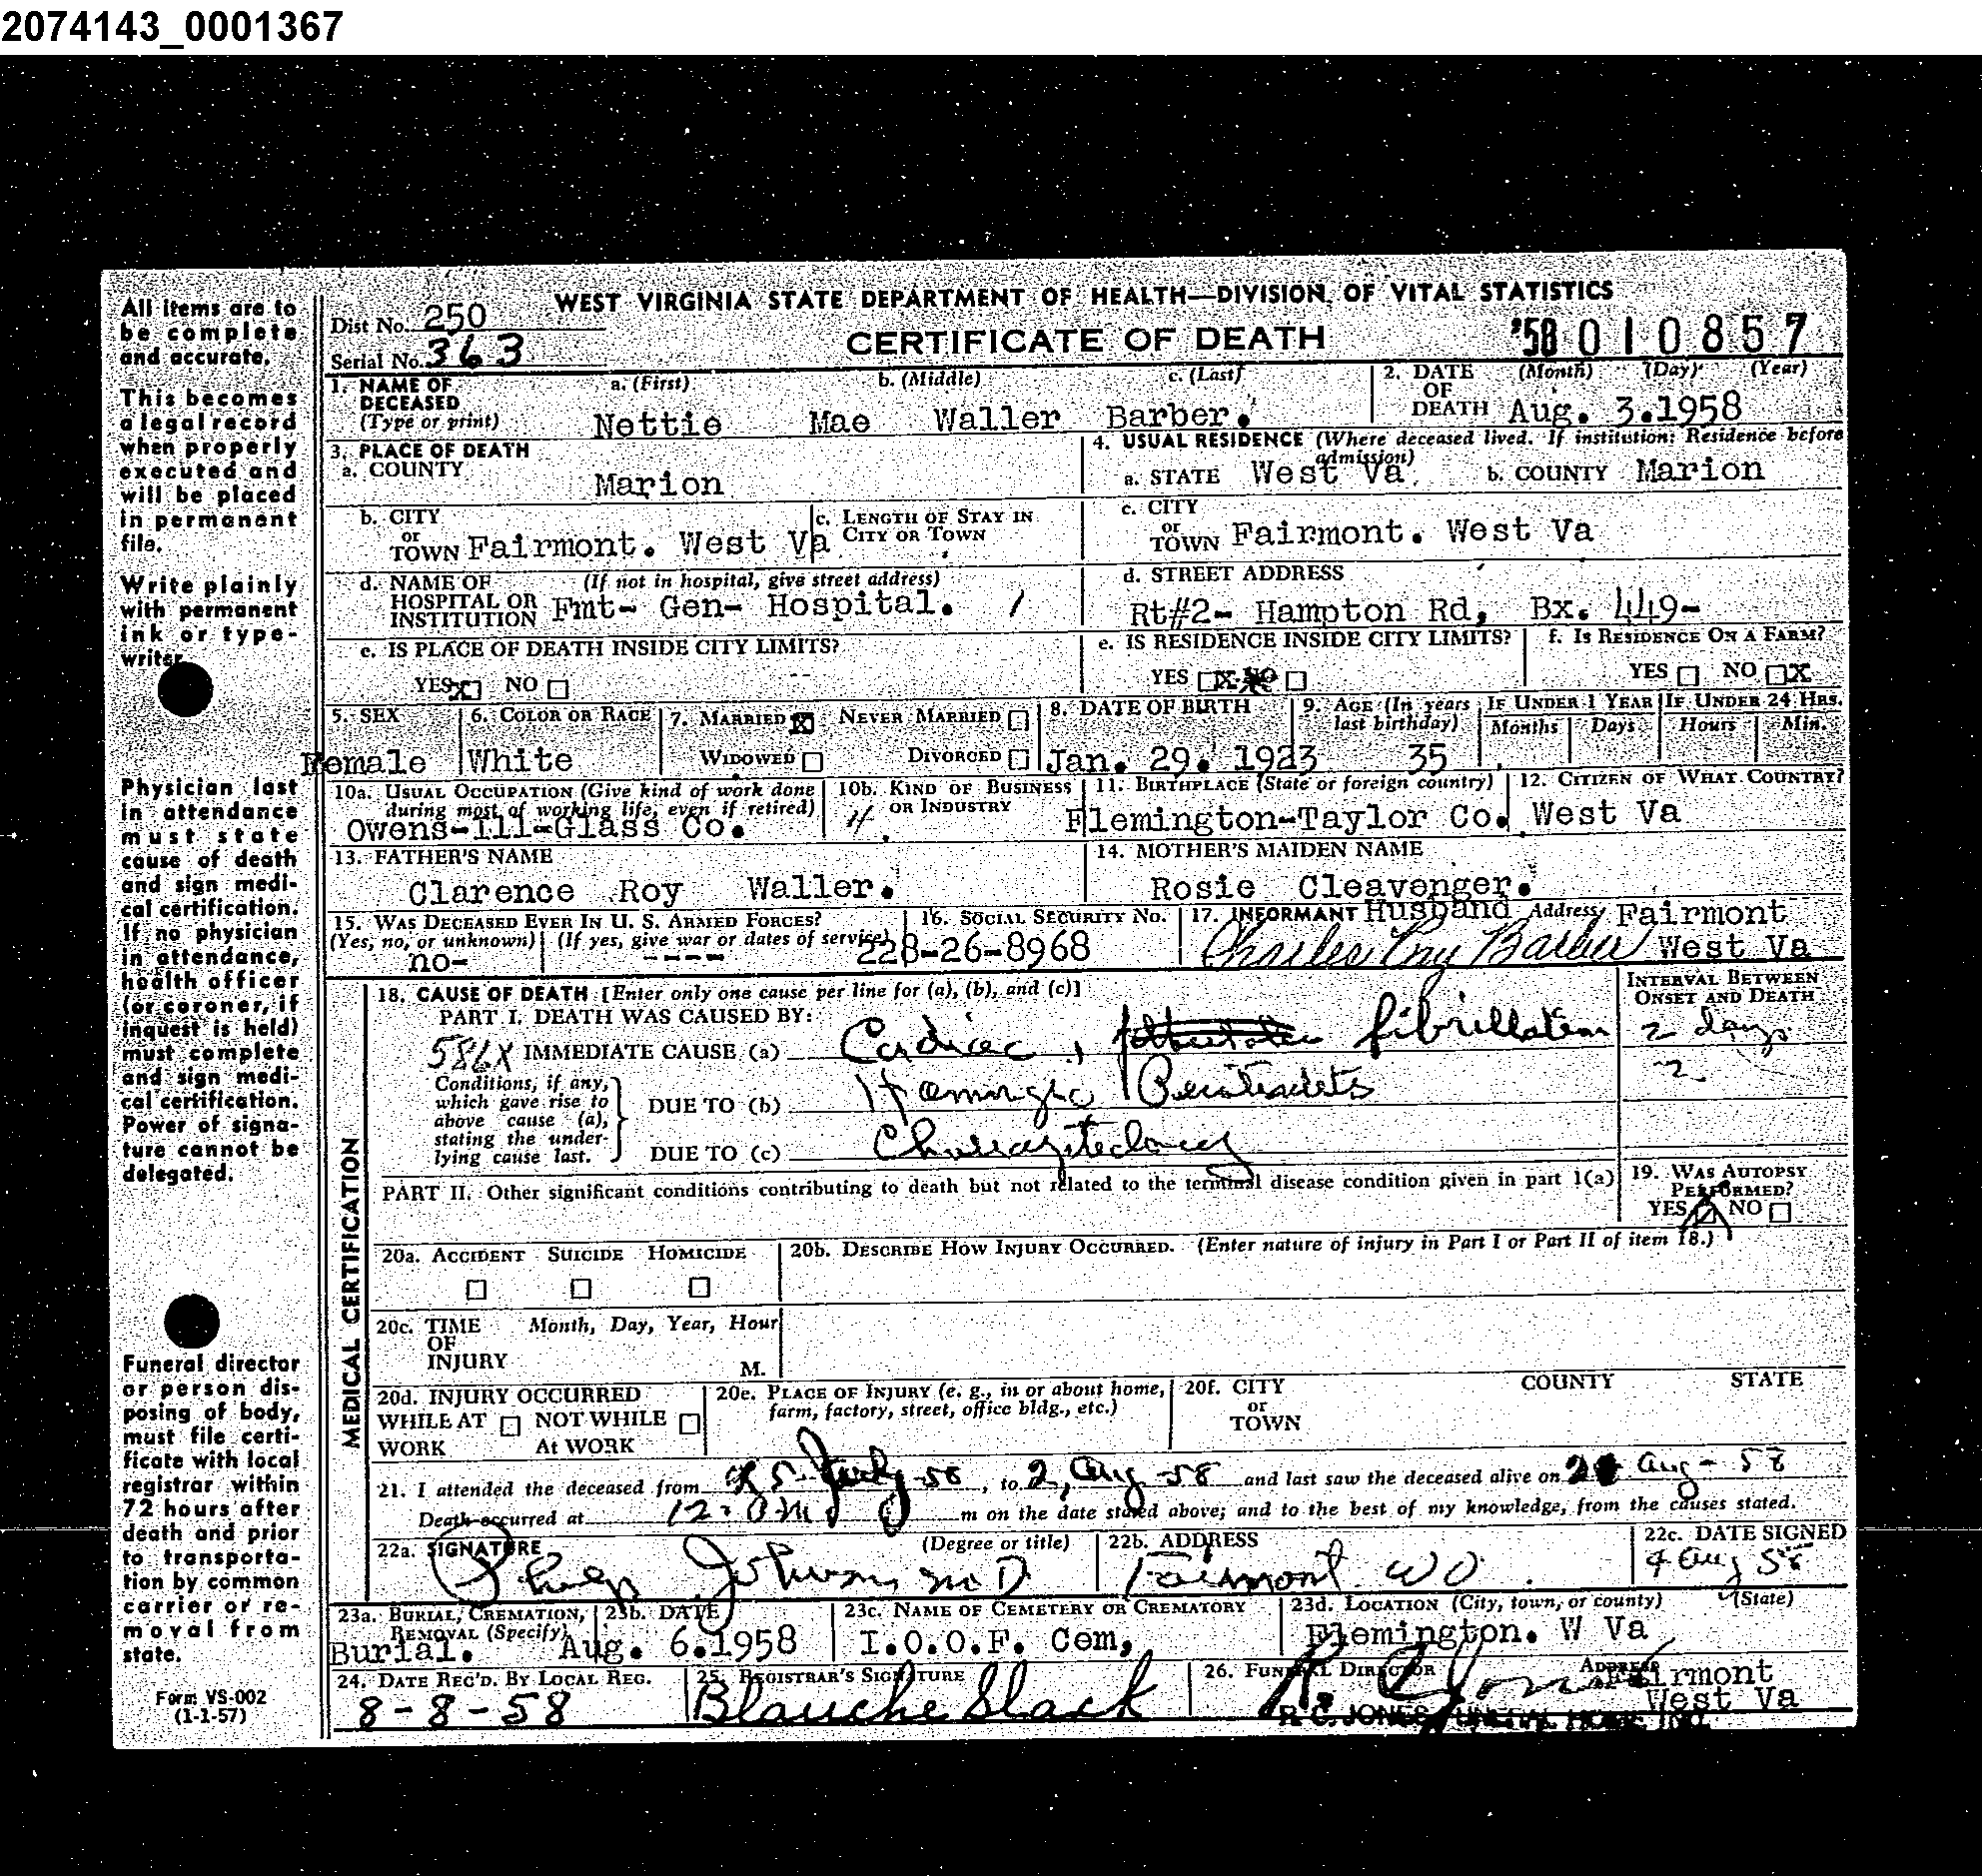 2074143_0001367
All items are to
be complete
and accurate.
This becomes
a legal record
when properly
executed and
will be placed
in permanent
file.
Write plainly
with permanent
ink or type-
writer.
Physician last
in attendance
must state
cause of death
and sign medi-
cal certification.
If no physician
in attendance,
health officer
(or coroner, if
inquest is held)
must complete
and sign medi-
cal certification.
Power of signa-
ture cannot be
delegated.
Funeral director
or person dis-
posing of body,
must file certi-
ficate with local
registrar within
72 hours after
death and prior
to transporta-
tion by common
carrier or re-
moval from
state.
Form VS-002
(1-1-57)
WEST VIRGINIA STATE DEPARTMENT OF HEALTH—DIVISION OF VITAL STATISTICS
Dist No. 250
CERTIFICATE OF DEATH '58 010857
Serial No. 363
1. NAME OF DECEASED (Type or print) a. (First) b. (Middle) c. (Last)
Nettie Mae Waller Barber.
2. DATE OF DEATH (Month) (Day) (Year)
Aug. 3.1958
3. PLACE OF DEATH
a. COUNTY Marion
4. USUAL RESIDENCE (Where deceased lived. If institution: Residence before admission)
a. STATE West Va b. COUNTY Marion
b. CITY or TOWN Fairmont. West Va
c. LENGTH OF STAY IN CITY OR TOWN
c. CITY or TOWN Fairmont. West Va
d. NAME OF HOSPITAL OR INSTITUTION (If not in hospital, give street address)
Fmt- Gen- Hospital.
d. STREET ADDRESS
Rt#2- Hampton Rd, Bx. 449-
e. IS PLACE OF DEATH INSIDE CITY LIMITS?
YES X NO
e. IS RESIDENCE INSIDE CITY LIMITS?
YES X NO
f. IS RESIDENCE ON A FARM?
YES NO X
5. SEX Female
6. COLOR OR RACE White
7. MARRIED X NEVER MARRIED
WIDOWED DIVORCED
8. DATE OF BIRTH Jan. 29. 1923
9. AGE (In years last birthday) 35
IF UNDER 1 YEAR Months Days
IF UNDER 24 HRS. Hours Min.
10a. USUAL OCCUPATION (Give kind of work done during most of working life, even if retired)
Owens-Ill-Glass Co.
10b. KIND OF BUSINESS OR INDUSTRY
11. BIRTHPLACE (State or foreign country)
Flemington-Taylor Co.
12. CITIZEN OF WHAT COUNTRY?
West Va
13. FATHER'S NAME
Clarence Roy Waller.
14. MOTHER'S MAIDEN NAME
Rosie Cleavenger.
15. WAS DECEASED EVER IN U. S. ARMED FORCES?
(Yes, no, or unknown) (If yes, give war or dates of service)
no- ----
16. SOCIAL SECURITY No.
228-26-8968
17. INFORMANT Husband Address Fairmont
Charles Roy Barber West Va
MEDICAL CERTIFICATION
18. CAUSE OF DEATH [Enter only one cause per line for (a), (b), and (c)]
PART I. DEATH WAS CAUSED BY:
INTERVAL BETWEEN ONSET AND DEATH
586X IMMEDIATE CAUSE (a) Cardiac, fibrillation 2 days
Conditions, if any, which gave rise to above cause (a), stating the under-lying cause last.
DUE TO (b)
DUE TO (c)
PART II. Other significant conditions contributing to death but not related to the terminal disease condition given in part 1(a)
19. WAS AUTOPSY PERFORMED?
YES NO
20a. ACCIDENT SUICIDE HOMICIDE
20b. DESCRIBE HOW INJURY OCCURRED. (Enter nature of injury in Part I or Part II of item 18.)
20c. TIME OF INJURY Month, Day, Year, Hour
M.
20d. INJURY OCCURRED
WHILE AT WORK NOT WHILE At WORK
20e. PLACE OF INJURY (e. g., in or about home, farm, factory, street, office bldg., etc.)
20f. CITY or TOWN COUNTY STATE
21. I attended the deceased from July -58, to 2, Aug -58 and last saw the deceased alive on 2 Aug - 58
Death occurred at m on the date stated above; and to the best of my knowledge, from the causes stated.
22a. SIGNATURE (Degree or title)
Philip Johnson MD
22b. ADDRESS
Fairmont
22c. DATE SIGNED
4 Aug 58
23a. BURIAL, CREMATION, REMOVAL (Specify)
Burial.
23b. DATE
Aug. 6.1958
23c. NAME OF CEMETERY OR CREMATORY
I.O.O.F. Cem,
23d. LOCATION (City, town, or county) (State)
Flemington. W Va
24. DATE REC'D. BY LOCAL REG.
8-8-58
25. REGISTRAR'S SIGNATURE
Blanche Slack
26. FUNERAL DIRECTOR ADDRESS
R. C. Jones Fairmont
West Va
R. C. JONES FUNERAL HOME INC.